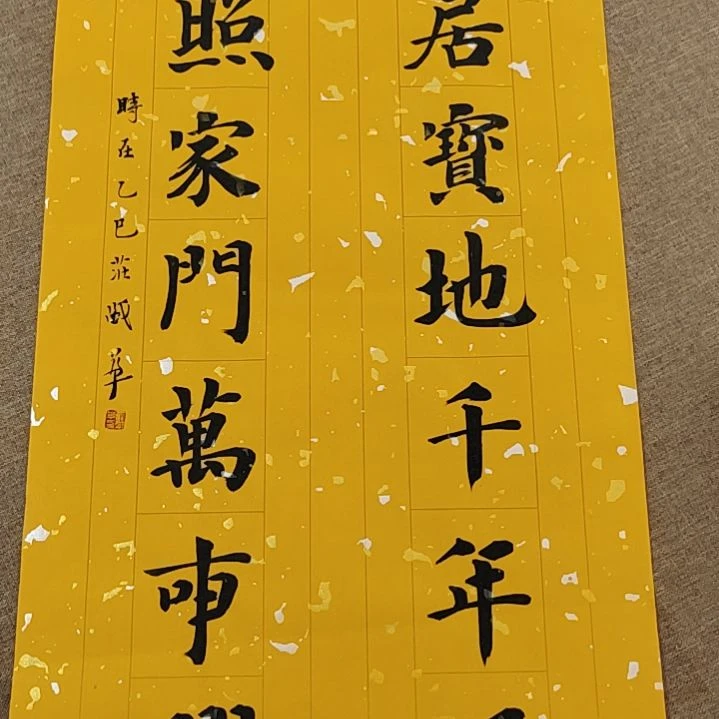 居寶地千年
照家門萬事
時在乙巳莊